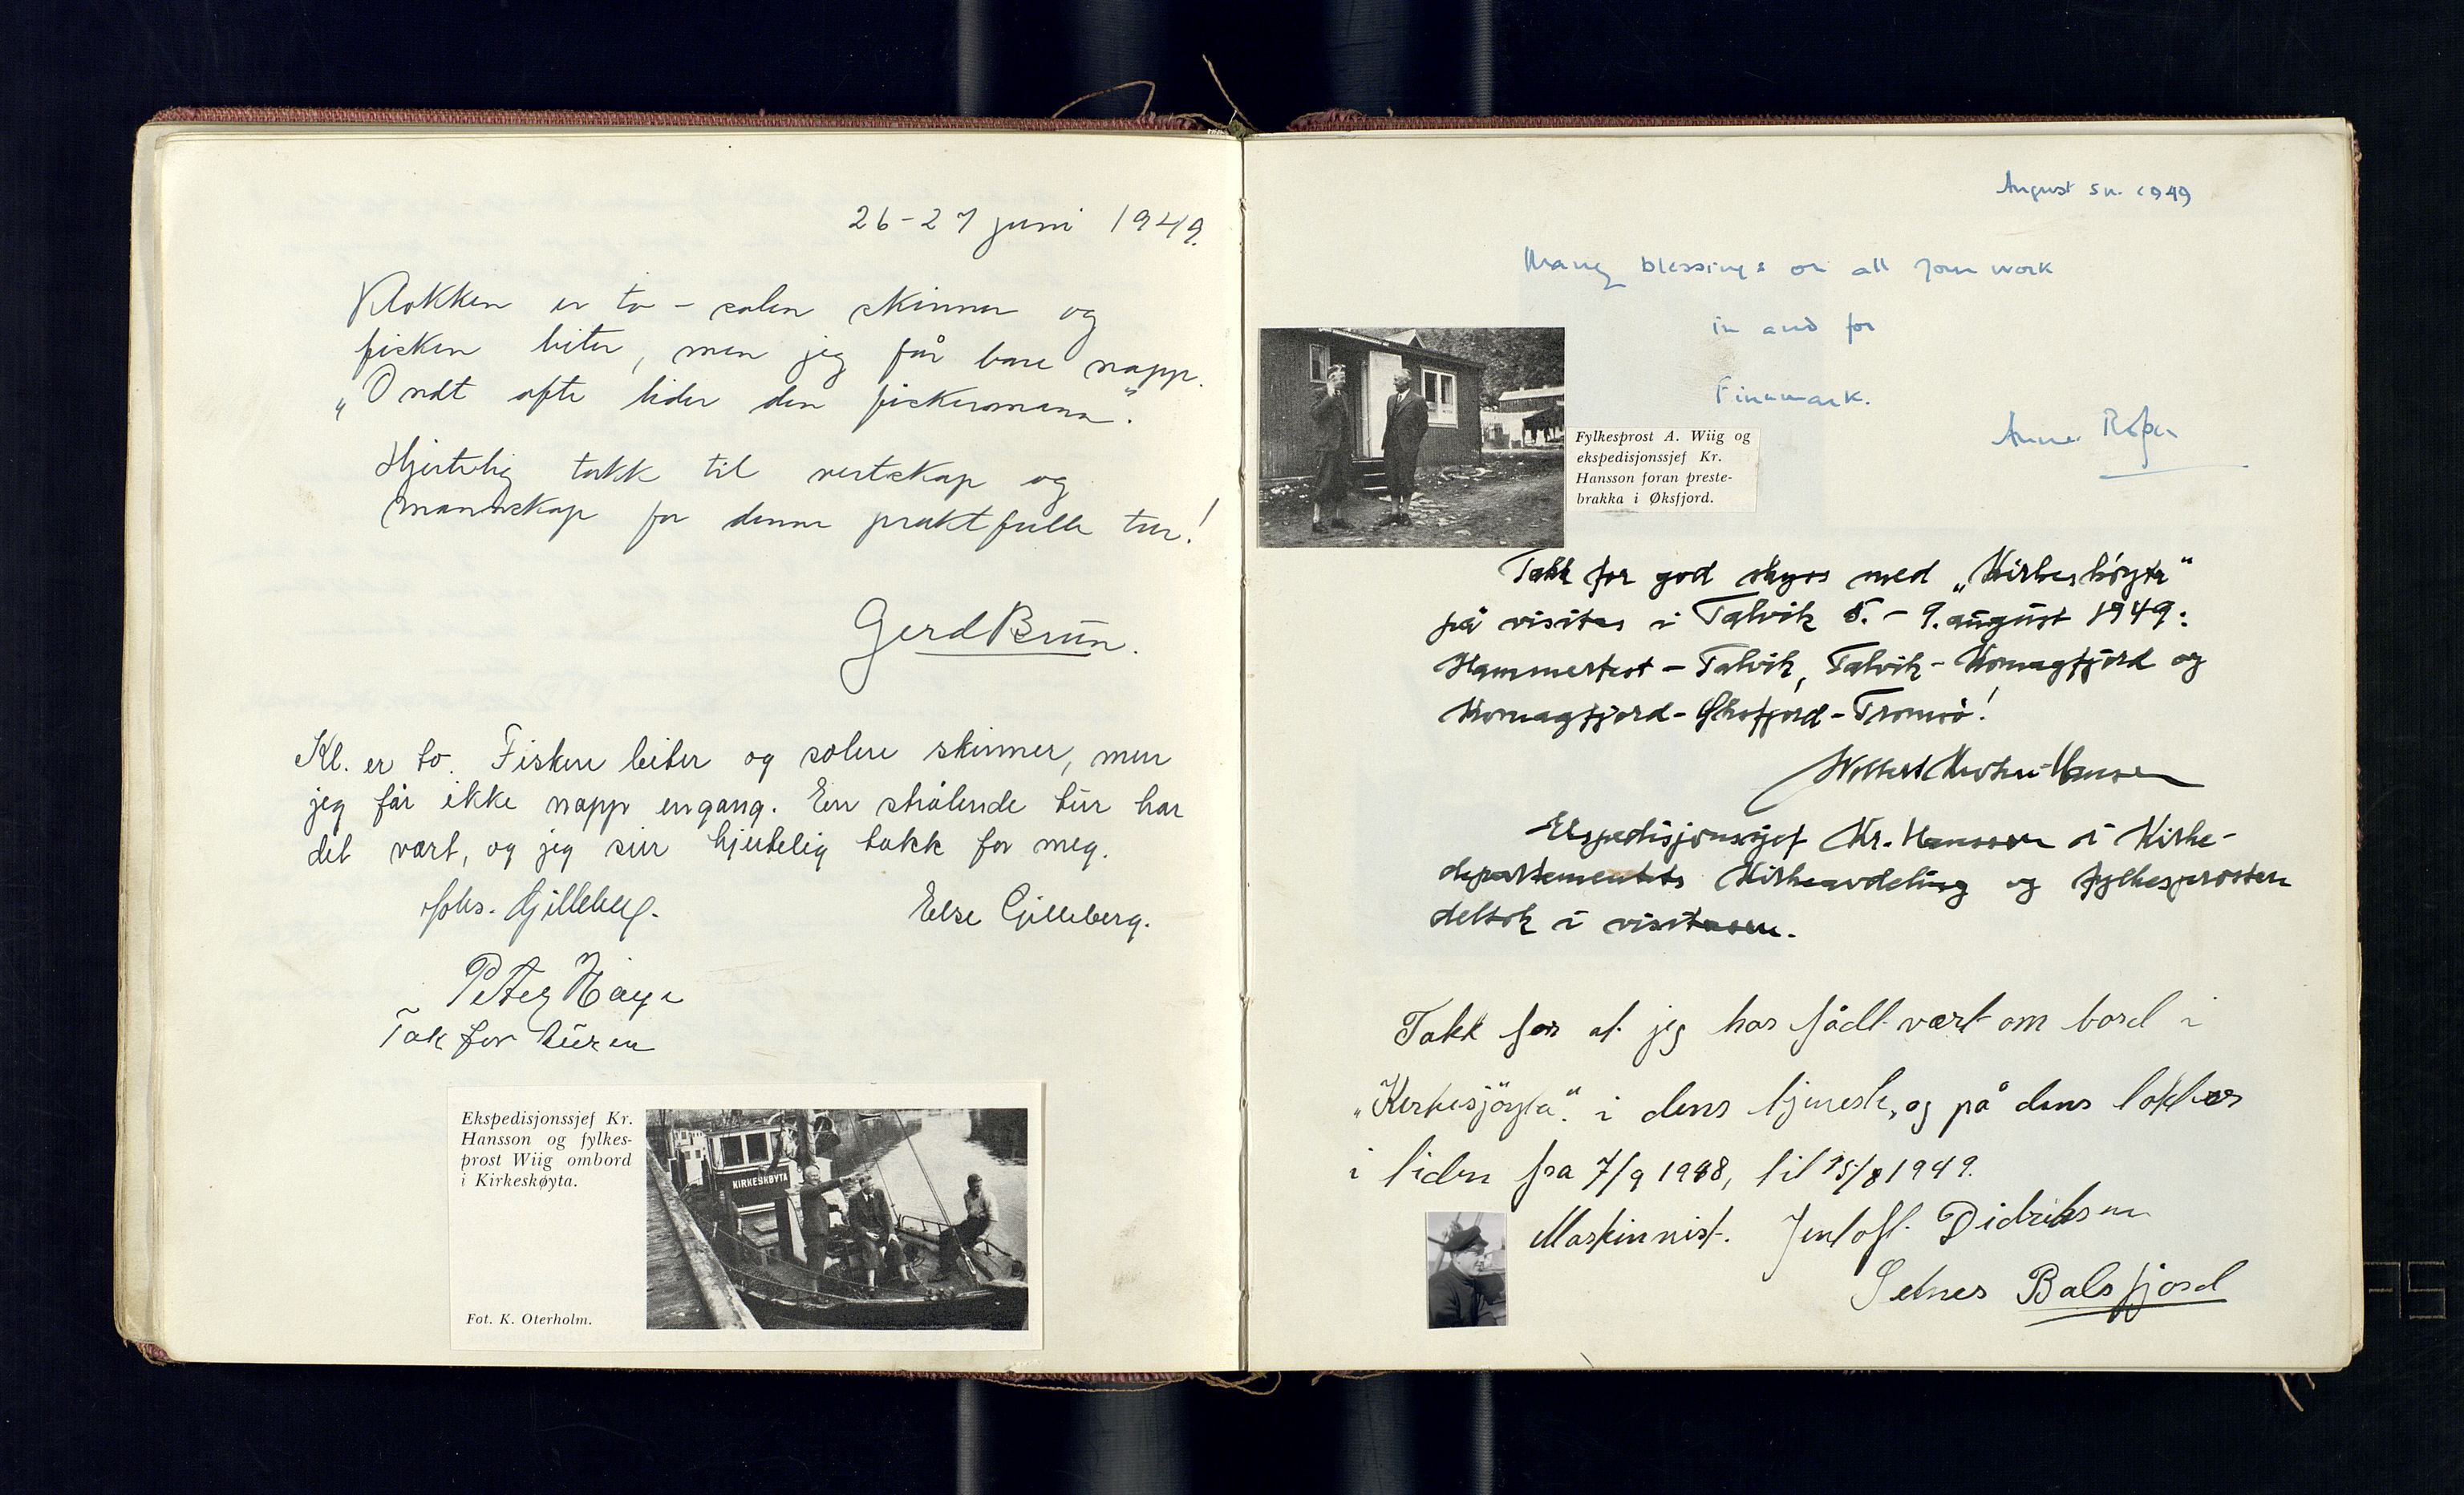 26-27 juni 1949.
Klokken er to - solen skinner og
fisken biter, men jeg får bare napp.
„Ondt ofte lider den fiskermann".
Hjertelig takk til vertskap og
mannskap for denne praktfulle tur!
Gerd Brun.
Kl. er to. Fisken biter og solen skinner, men
jeg får ikke napp engang. En strålende tur har
det vært, og jeg sier hjertelig takk for meg.
Johs. Gjilleberg.
Else Gjilleberg.
Tak for turen
Ekspedisjonssjef Kr.
Hansson og fylkes-
prost Wiig ombord
i Kirkeskøyta.
Fot. K. Oterholm.
KIRKESKØYTA
August 5th. 1949
Many blessings on all your work
in and for
Finnmark.
Anne
Fylkesprost A. Wiig og
ekspedisjonssjef Kr.
Hansson foran preste-
brakka i Øksfjord.
Takk for god skyss med „Kirkeskøyta"
på visitas i Talvik 5. - 9. august 1949:
Hammerfest - Talvik, Talvik - Komagfjord og
Komagfjord - Øksfjord - Tromsø!
Wollert Krohn-Hansen
Ekspedisjonssjef Kr. Hansson i Kirke-
departementets Kirkeavdeling og fylkesprosten
deltok i visitasen.
Takk for at jeg har fådt vært om bord i
„Kirkesjöyta". i dens tjeneste, og på dens tokter
i tiden fra 7/9 1948, til 15/8 1949.
Maskinnist. Jentoft. Didriksen
Selnes Balsfjord